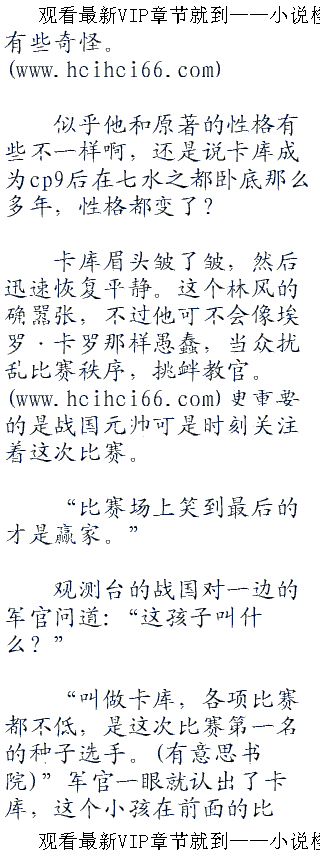 观看最新VIP章节就到——小说楼
有些奇怪。
(www.hcihci66.com)
似乎他和原著的性格有
些不一样啊，还是说卡库成
为cp9后在七水之都卧底那么
多年，性格都变了？
卡库眉头皱了皱，然后
迅速恢复平静。这个林风的
确嚣张，不过他可不会像埃
罗·卡罗那样愚蠢，当众扰
乱比赛秩序，挑衅教官。
(www.hcihci66.com)更重要
的是战国元帅可是时刻关注
着这次比赛。
“比赛场上笑到最后的
才是赢家。”
观测台的战国对一边的
军官问道：“这孩子叫什
么？”
“叫做卡库，各项比赛
都不低，是这次比赛第一名
的种子选手。(有意思书
院)”军官一眼就认出了卡
库，这个小孩在前面的比
观看最新VIP章节就到——小说